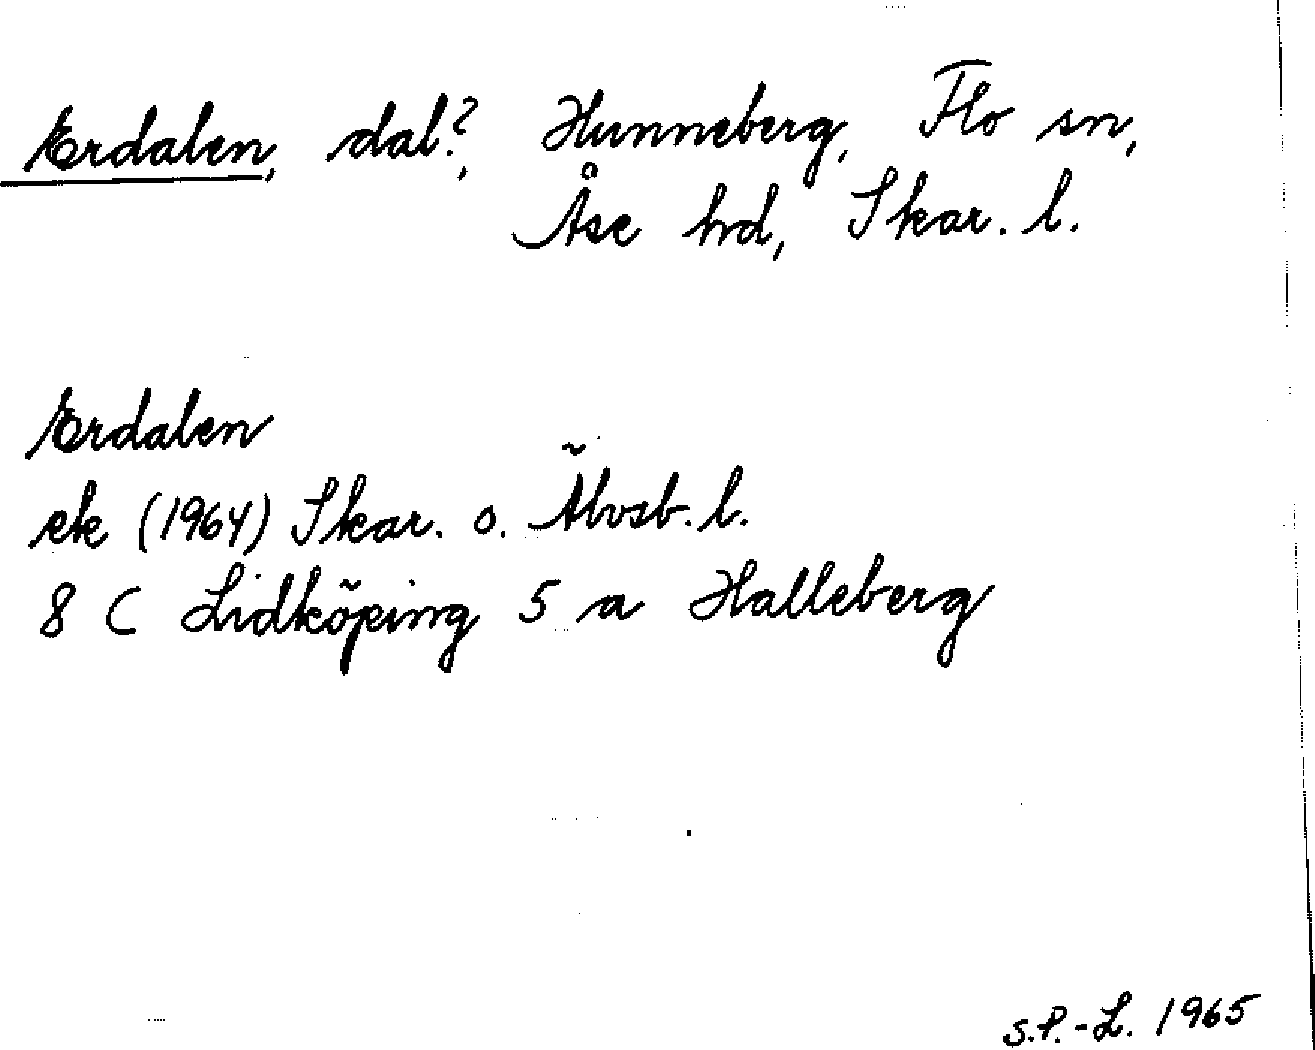 Erdalen, dal?, Hunneberg, Flo sn,
Åse hd, Skar. l.
Erdalen
ek (1964) Skar. o. Älvsb. l.
8 C Lidköping 5 a Halleberg
S.P.-L. 1965